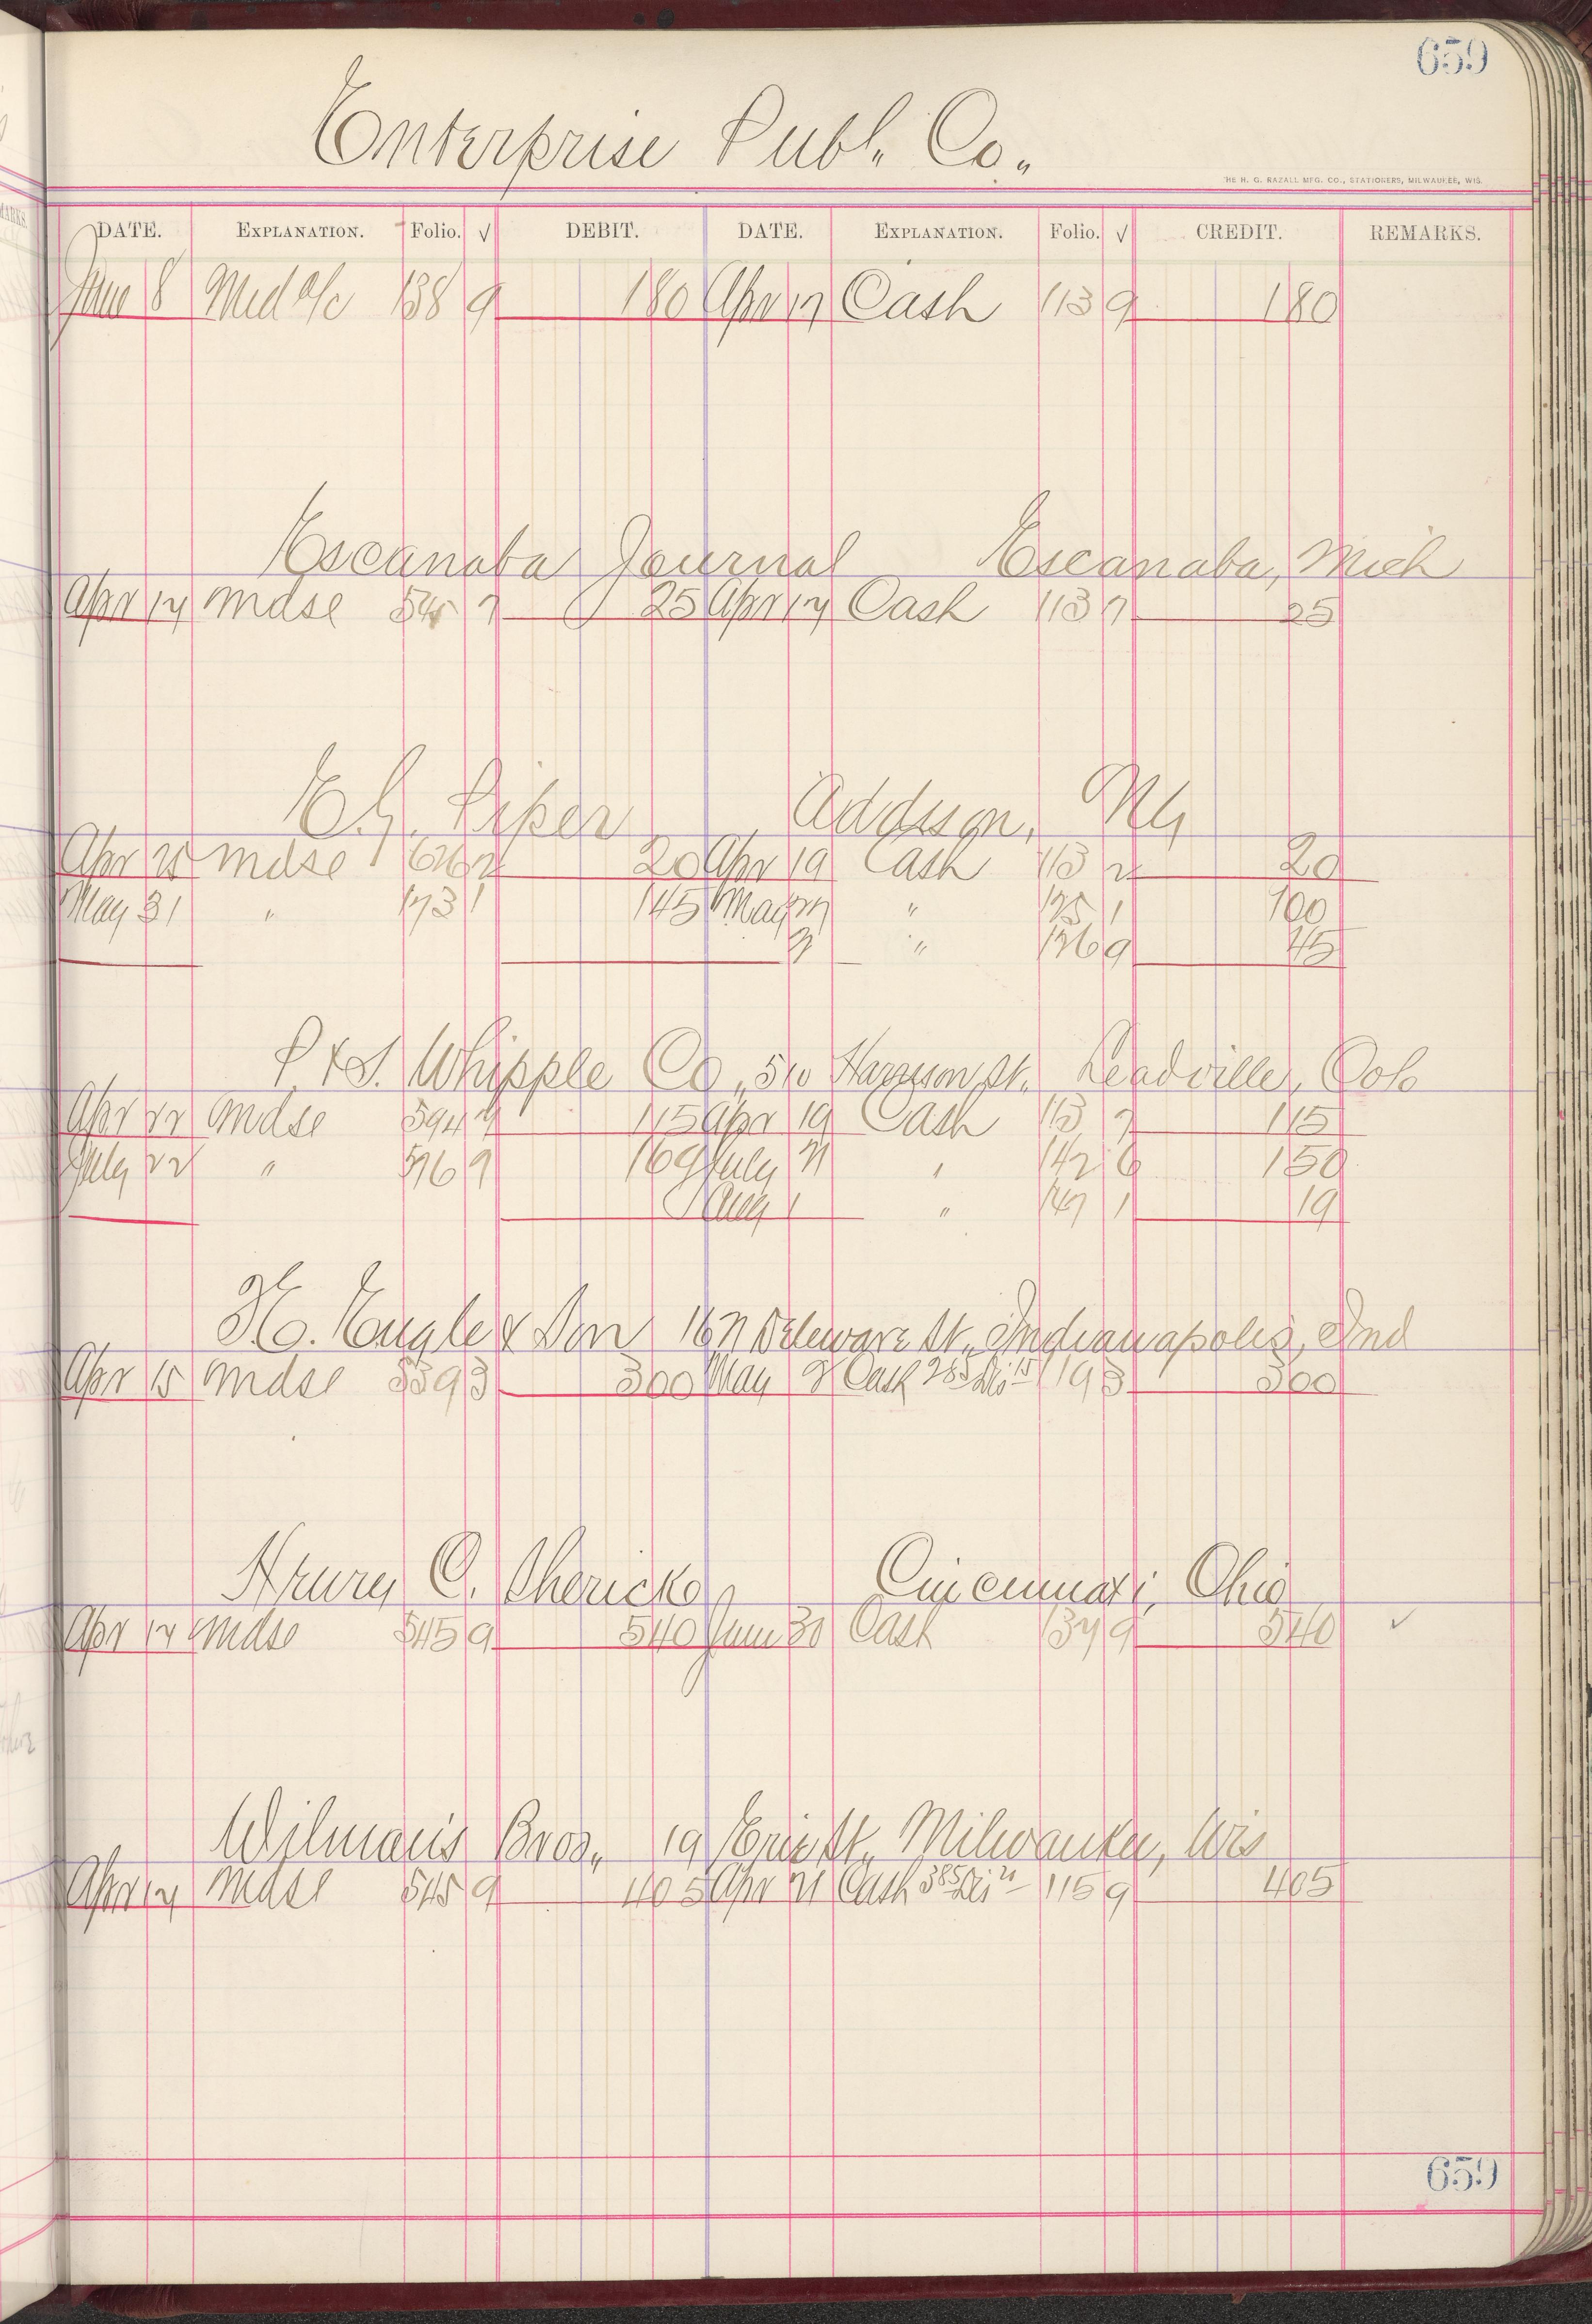 659
Enterprise Publ. Co.
THE H. G. RAZALL MFG. CO., STATIONERS, MILWAUKEE, WIS.
DATE. EXPLANATION. Folio. √ DEBIT. DATE. EXPLANATION. Folio. √ CREDIT. REMARKS.
June 8 Md a/c 138 9 180 Apr 17 Cash 113 9 180
Escanaba Journal Escanaba, Mich
Apr 14 Mdse 545 7 25 Apr 14 Cash 113 7 25
E.G. Piper Addison, NY
Apr 25 Mdse 626 2 20 Apr 19 Cash 113 2 20
May 31 " 173 1 145 May 27 " 125 1 100
" 126 9 45
P. & S. Whipple Co., 510 Harrison St., Leadville, Colo
Apr 22 Mdse 594 7 115 Apr 19 Cash 113 7 115
July 22 " 576 9 169 July 21 " 142 6 150
Aug 1 " 147 1 19
H. Engle & Son 16 N Deleware St., Indianapolis, Ind
Apr 15 Mdse 559 3 300 May 2 Cash 285 Dis 15 119 3 300
Henry C. Sherick Cincinnati, Ohio
Apr 14 Mdse 545 9 540 June 30 Cash 137 9 540 ✓
Wilmanis Bros., 19 Erie St., Milwaukee, Wis
Apr 14 Mdse 545 9 405 Apr 21 Cash 385 Dis 20 115 9 405
659